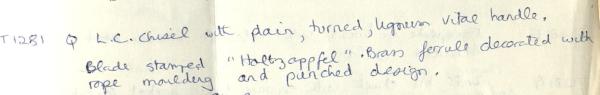 T1281 Q L.C. Chisel with plain, turned, lignum vitae handle.
Blade stamped "Holtzappfel". Brass ferrule decorated with
rope moulding and punched design.